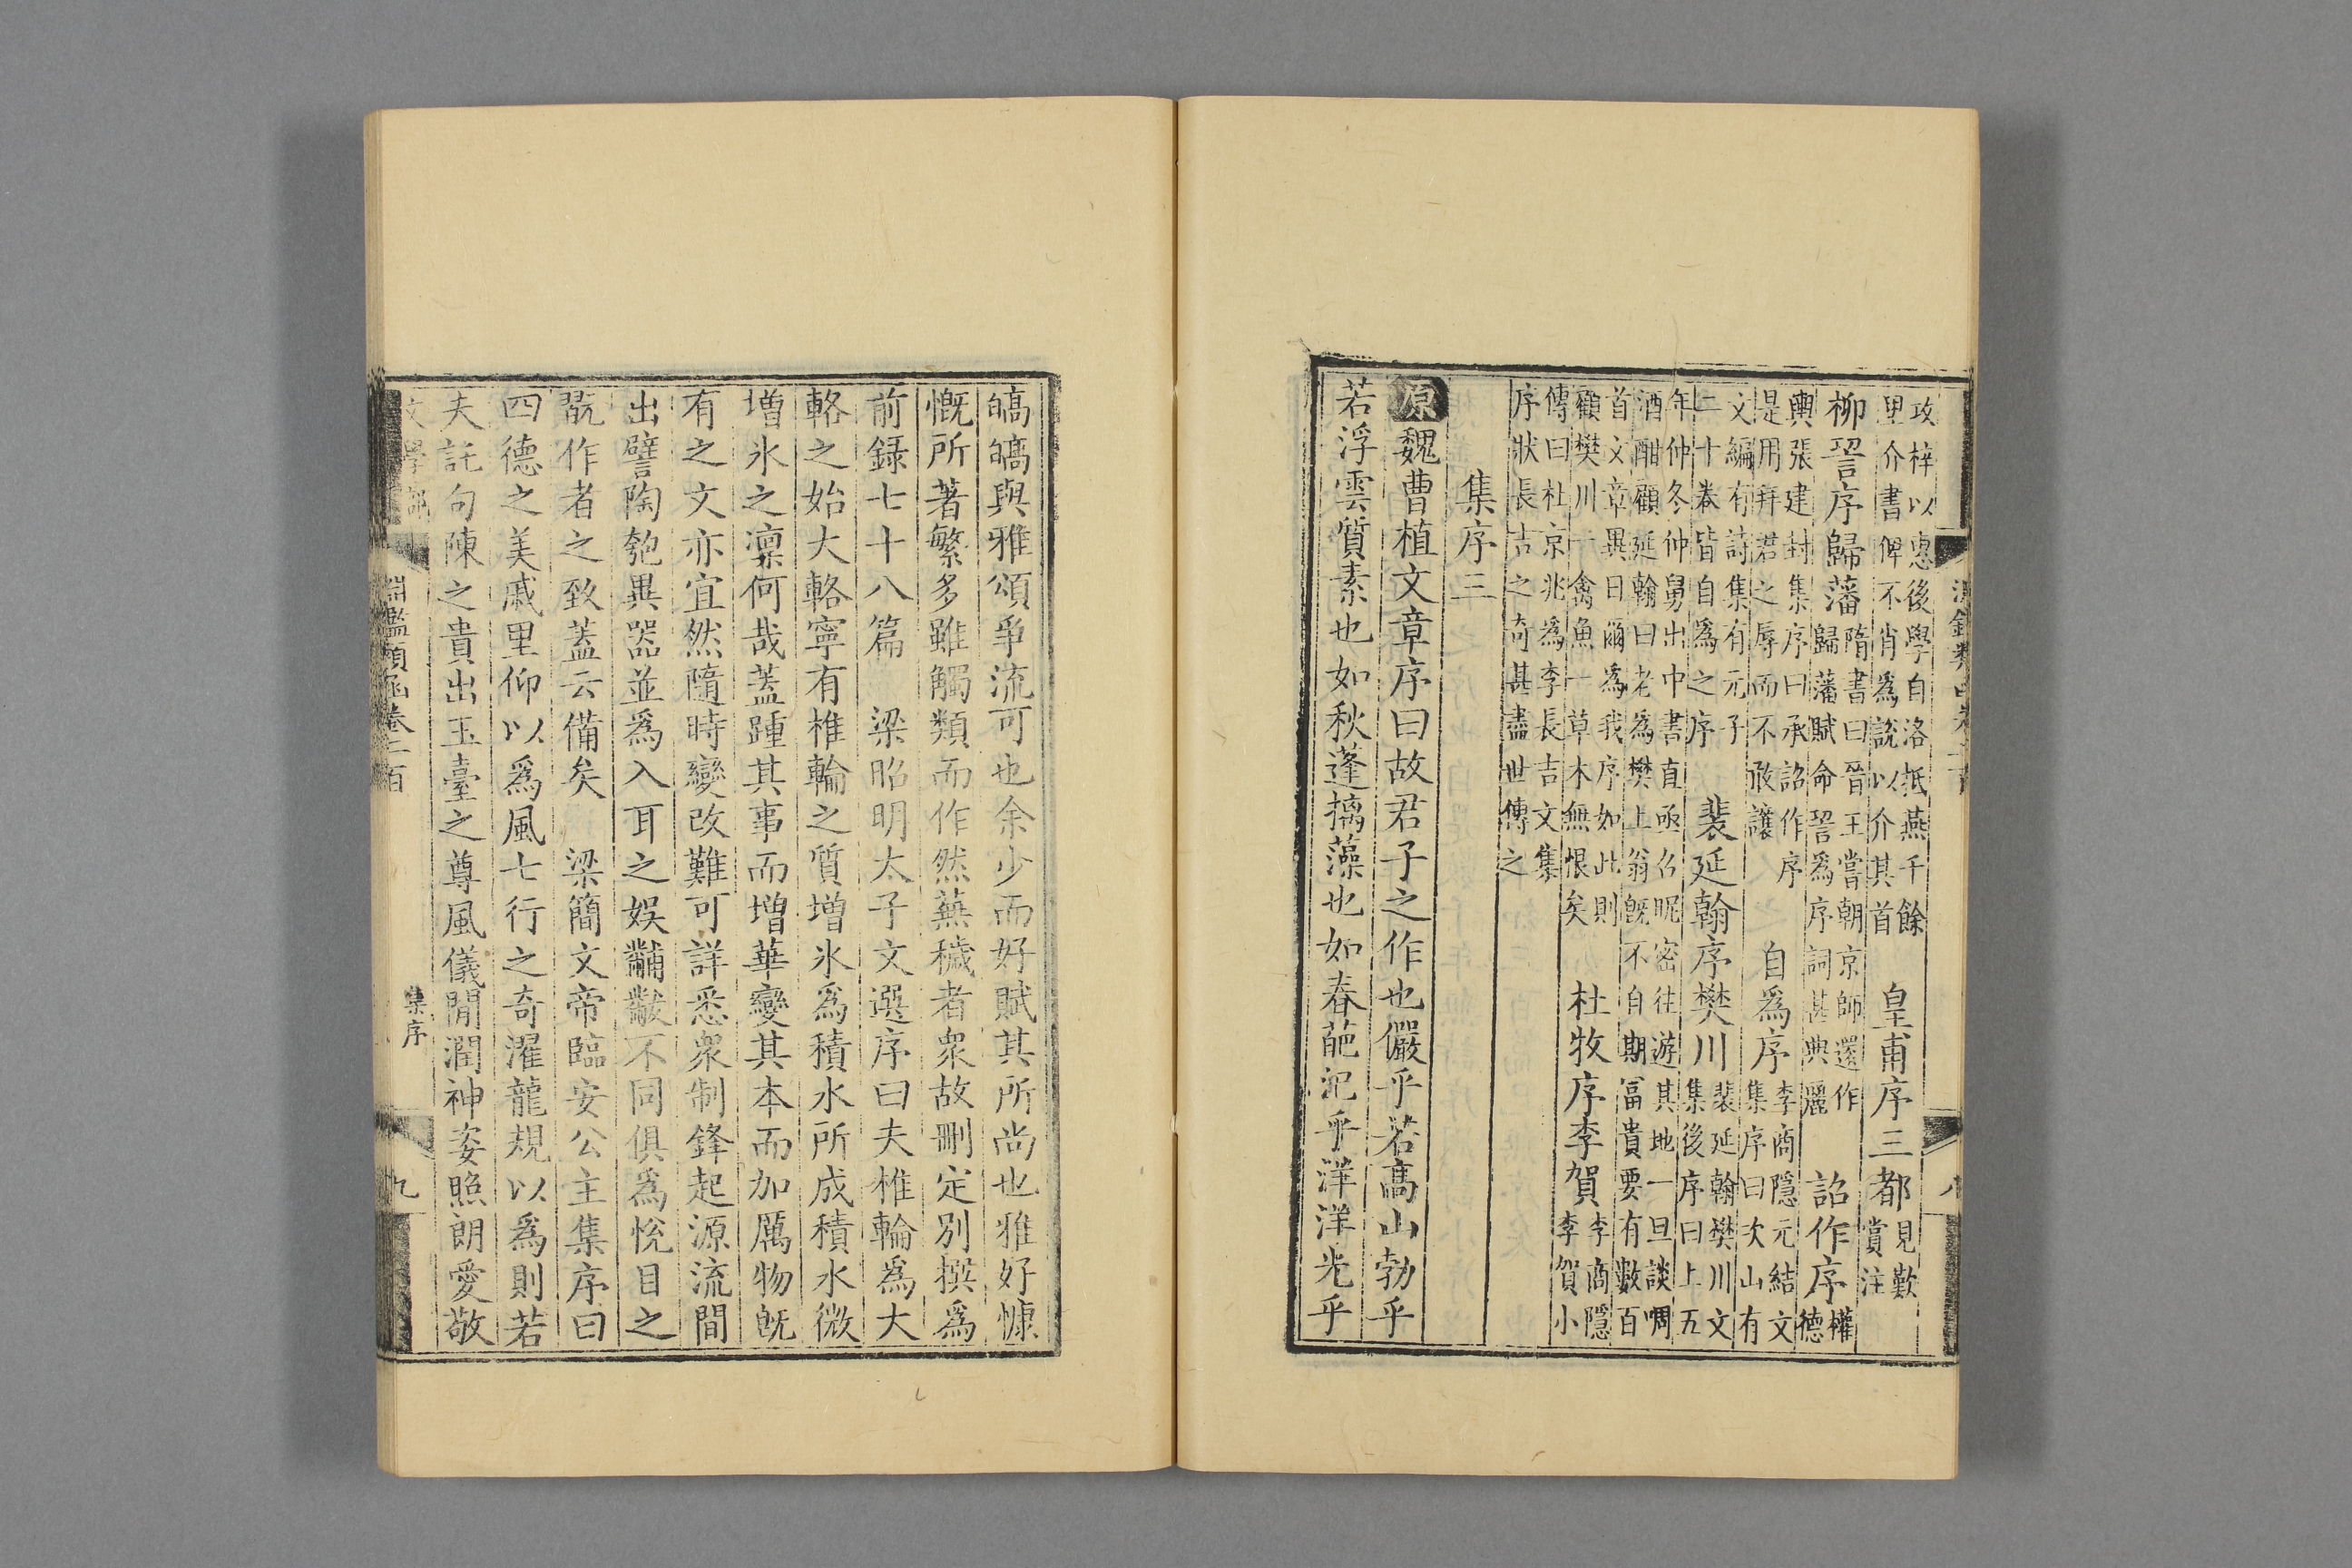 攻梓以惠後學自洛抵燕千餘
里介書俾不肖為說以介其首
皇甫序三都
見歎
賞注
柳䛒序歸藩
隋書曰晉王嘗朝京師還作
歸藩賦命䛒為序詞甚典麗
詔作序
權
德
輿張建封集序曰承詔作序
是用弁君之辱而不敢讓
自為序
李商隱元結文
集序曰次山有
文編有詩集有元子
二十卷皆自為之序
裴延翰序樊川
裴延翰樊川文
集後序曰上五
年仲冬仲舅出中書直亟召昵密往遊其地一旦談啁
酒酣顧延翰曰老為樊上翁既不自期富貴要有數百
首文章異日爾為我序如此則
顧樊川一禽魚一草木無恨矣
杜牧序李賀
李商隱
李賀小
傳曰杜京兆為李長吉文集
序狀長吉之奇甚盡世傳之
集序三
原魏曹植文章序曰故君子之作也儼乎若高山勃乎
若浮雲質素也如秋蓬摛藻也如春葩氾乎洋洋光乎
皜皜與雅頌爭流可也余少而好賦其所尚也雅好慷
慨所著繁多雖觸類而作然蕪穢者衆故刪定別撰爲
前錄七十八篇　梁昭明太子文選序曰夫椎輪爲大
輅之始大輅寧有椎輪之質增氷爲積水所成積水微
增氷之凜何哉蓋踵其事而增華變其本而加厲物既
有之文亦宜然隨時變改難可詳悉衆制鋒起源流間
出譬陶匏異器並爲入耳之娛黼黻不同俱爲悅目之
翫作者之致蓋云備矣　梁簡文帝臨安公主集序曰
四德之美戚里仰以爲風七行之奇濯龍規以爲則若
夫託句陳之貴出玉臺之尊風儀閒潤神姿照朗愛敬
淵鑑類函卷二百
集序
九